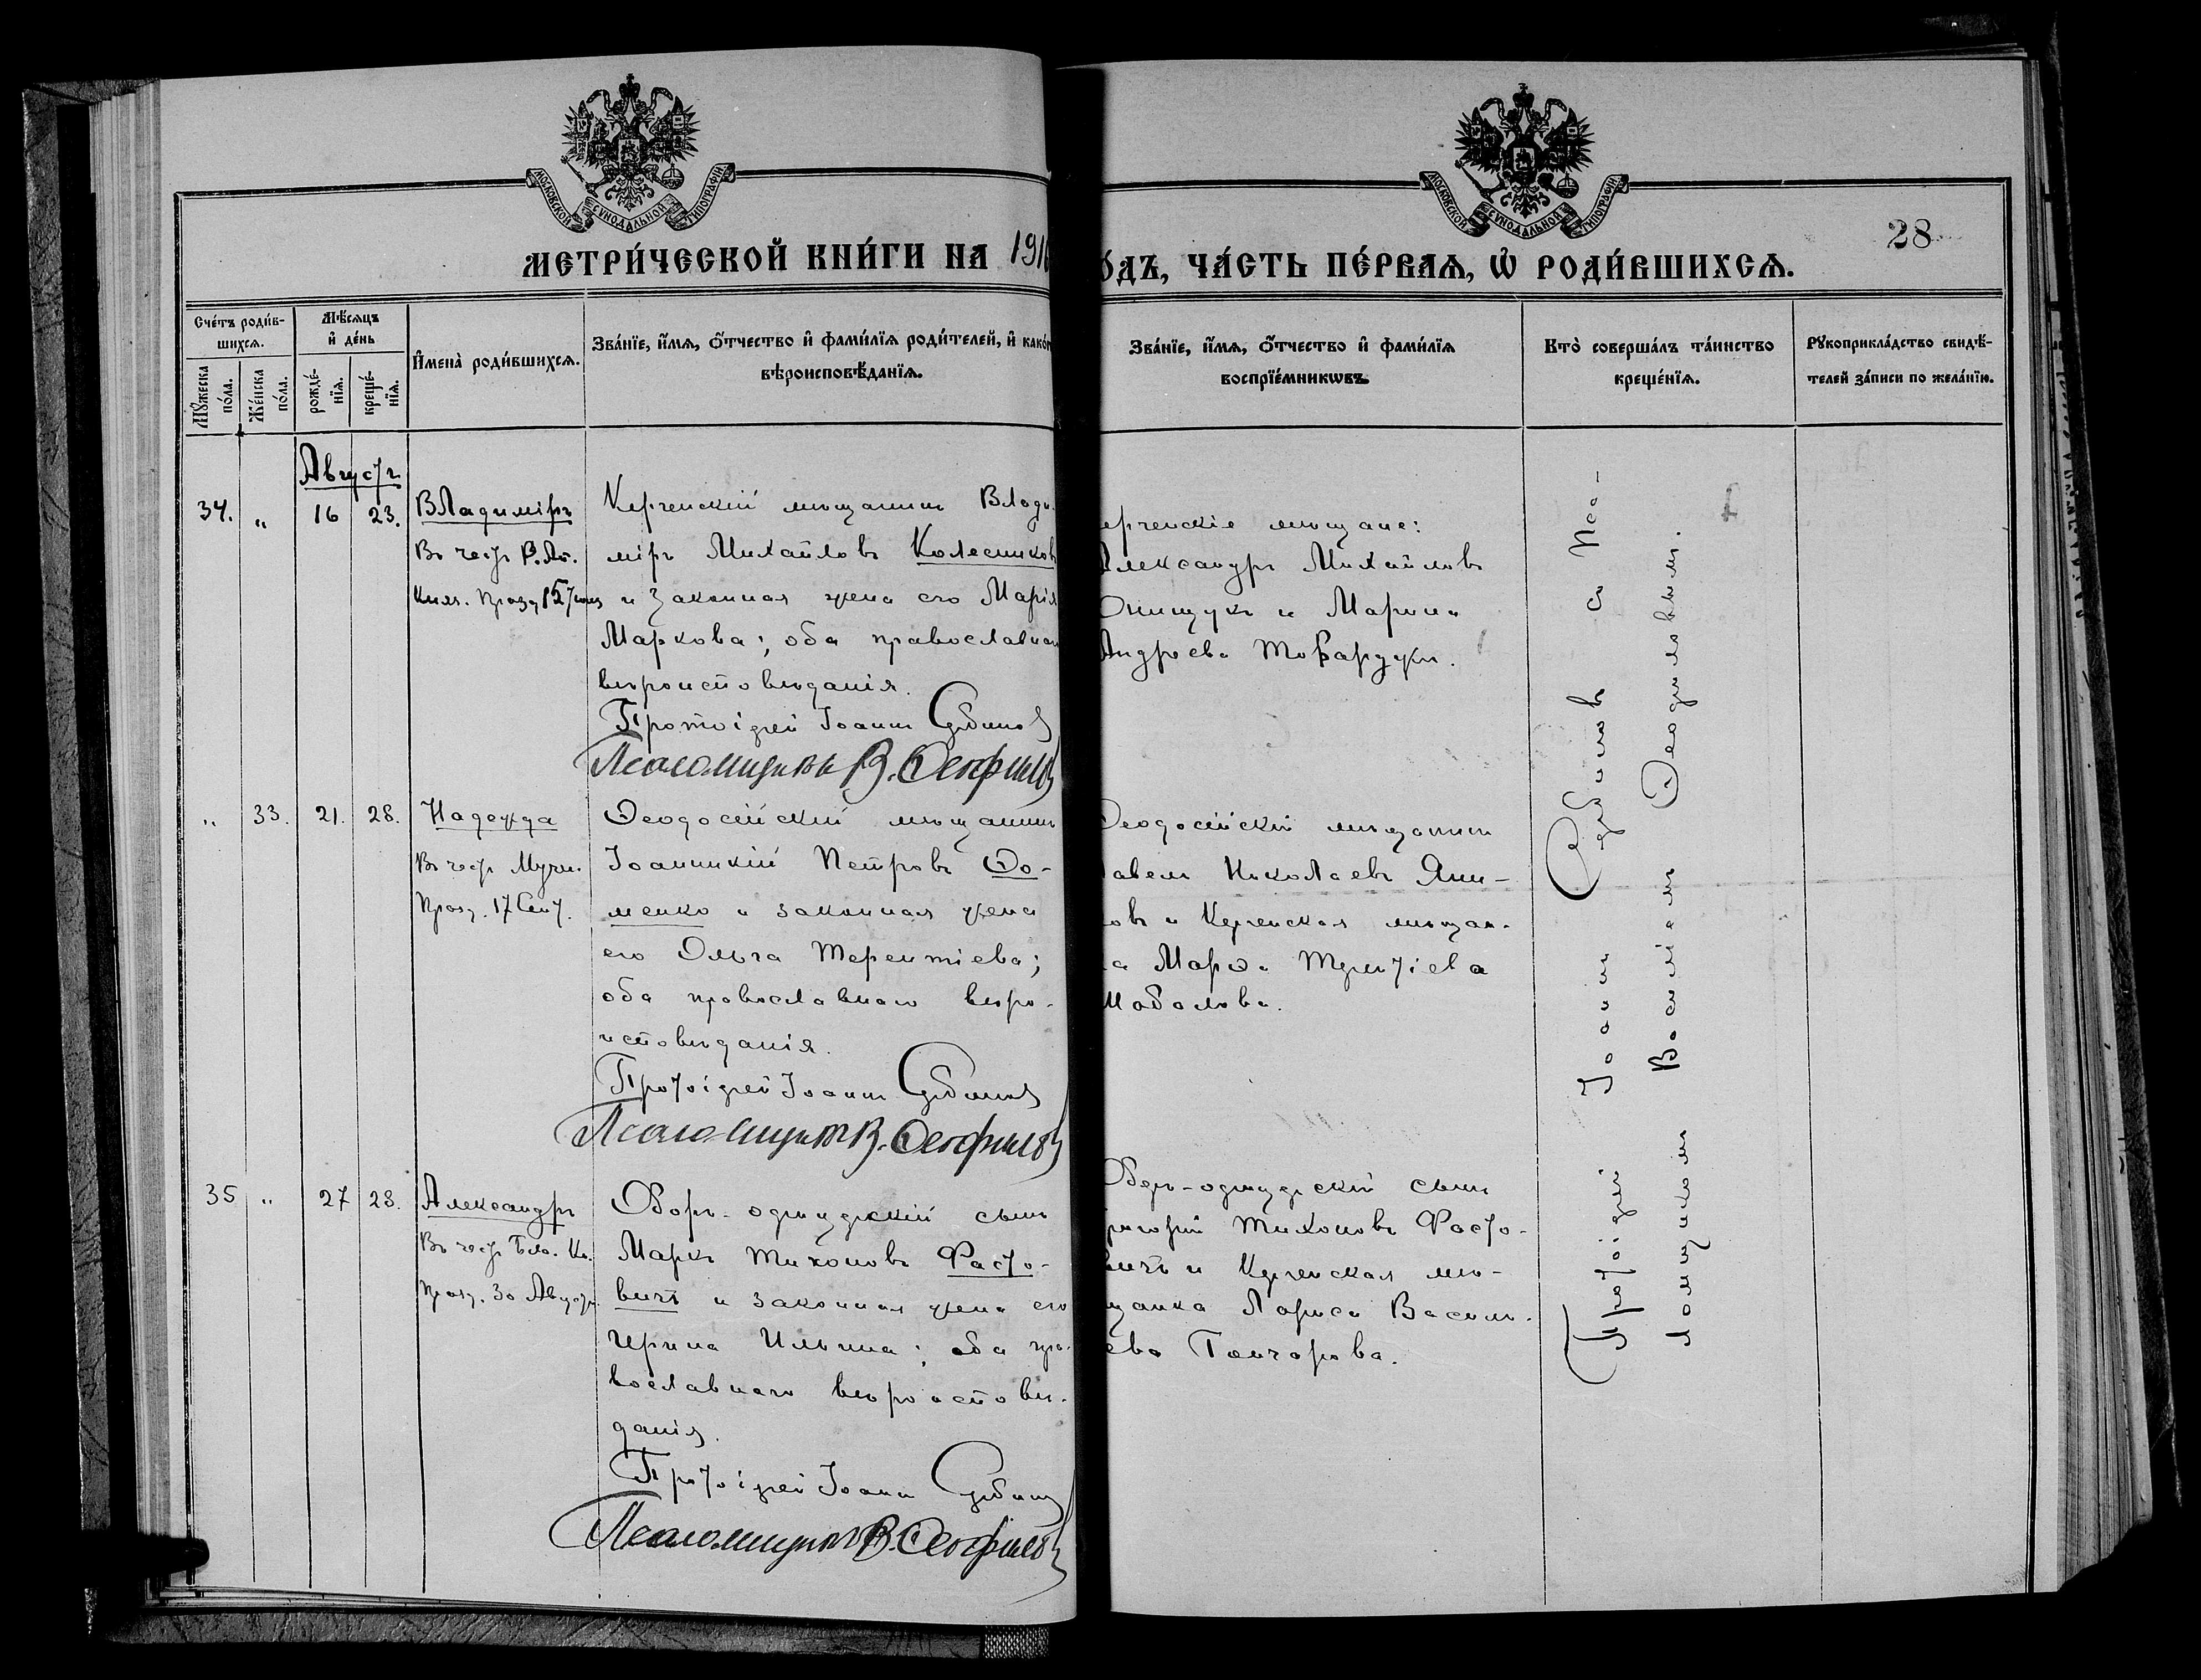 МОСКОВСКОЙ СѴНОДАЛЬНОЙ ТИПОГРАФІИ
МОСКОВСКОЙ СѴНОДАЛЬНОЙ ТИПОГРАФІИ
28
МЕТРИ́ЧЕСКОЙ КНИ́ГИ НА 191
О́ДЪ, ЧА́СТЬ ПЕ́РВАѦ, Ѡ҆ РОДИ́ВШИХСѦ.
Сче́тъ роди́в-
шихсѧ.
Мꙋ́жеска по́ла.
Же́нска по́ла.
Мѣ́сѧцъ
и҆ де́нь
рожде́-
нїѧ.
креще́-
нїѧ.
И҆мена̀ роди́вшихсѧ.
Зва́нїе, и҆́мѧ, ѻ҆́тчество и҆ фами́лїѧ роди́телей, и҆ како́
вѣроисповѣ́данїѧ.
Зва́нїе, и҆́мѧ, ѻ҆́тчество и҆ фами́лїѧ
воспрїе́мникѡвъ.
Кто̀ соверша́лъ та́инство
креще́нїѧ.
Рꙋкоприкла́дство свидѣ́-
телей за́писи по жела́нїю.
Августъ
34. „ 16 23.
Владиміръ
Въ честь Р. Ап.
Княз. Празд 15 Іюля
Керченскій мѣщанинъ Влади-
міръ Михайловъ Колесниковъ
и законная жена его Марія
Маркова; оба православнаго
вѣроисповѣданія.
Протоіерей Іоаннъ Сербиновъ
Псаломщикъ В. Ѳеофиловъ
ерченскіе мѣщане:
Александръ Михайловъ
Онищукъ и Марина
Андреева
„ 33. 21. 28.
Надежда
Въ честь Мучен.
Празд. 17 Сент.
Ѳеодосійскій мѣщанинъ
Іоанникій Петровъ Ѳо-
менко и законная жена
его Ольга Терентіева;
оба православнаго вѣро-
исповѣданія.
Протоіерей Іоаннъ Сербиновъ
Псаломщикъ В. Ѳеофиловъ
Ѳеодосійскій мѣщанинъ
авелъ Николаевъ Яни-
овъ и Керченская мѣщан-
а Марѳа Терентіева
Шаболова.
35 „ 27 28.
Александръ
Въ честь Блг. Кн.
Празд. 30 Августа
Оберъ-офицерскій сынъ
Маркъ Тихоновъ Фасто-
вичъ и законная жена его
Ирина Ильина; оба пра-
вославнаго вѣроисповѣ-
данія.
Протоіерей Іоаннъ Сербиновъ
Псаломщикъ В. Ѳеофиловъ
Оберъ-офицерскій сынъ
ригорій Тихоновъ Фасто-
вичъ и Керченская мѣ-
щанка Лариса Василь-
ева Гончарова.
Протоіерей Іоаннъ Сербиновъ съ Пса-
ломщикомъ Василіемъ Ѳеофиловымъ.